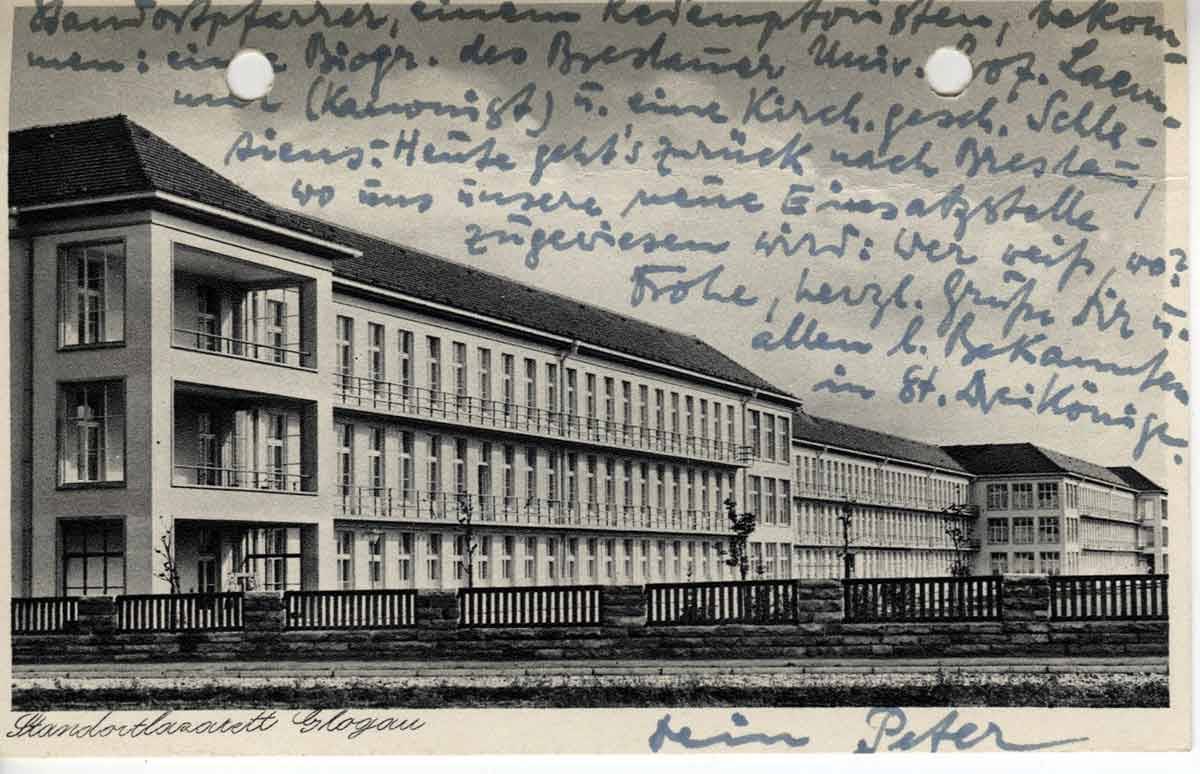 Standortpfarrer, einem Redemptoristen, bekom-
men: eine Biogr. des Breslauer Univ. Prof. Laem-
mer (Kanonist) u. eine Kirch. gesch. Schle-
siens. Heute geht's zurück nach Breslau,
wo uns unsere neue Einsatzstelle
zugewiesen wird: wer weiß, wo?
Frohe, herzl. Grüße Dir u.
allen l. Bekannten
in St. Dreikönige.
dein Peter
Standortlazarett Glogau